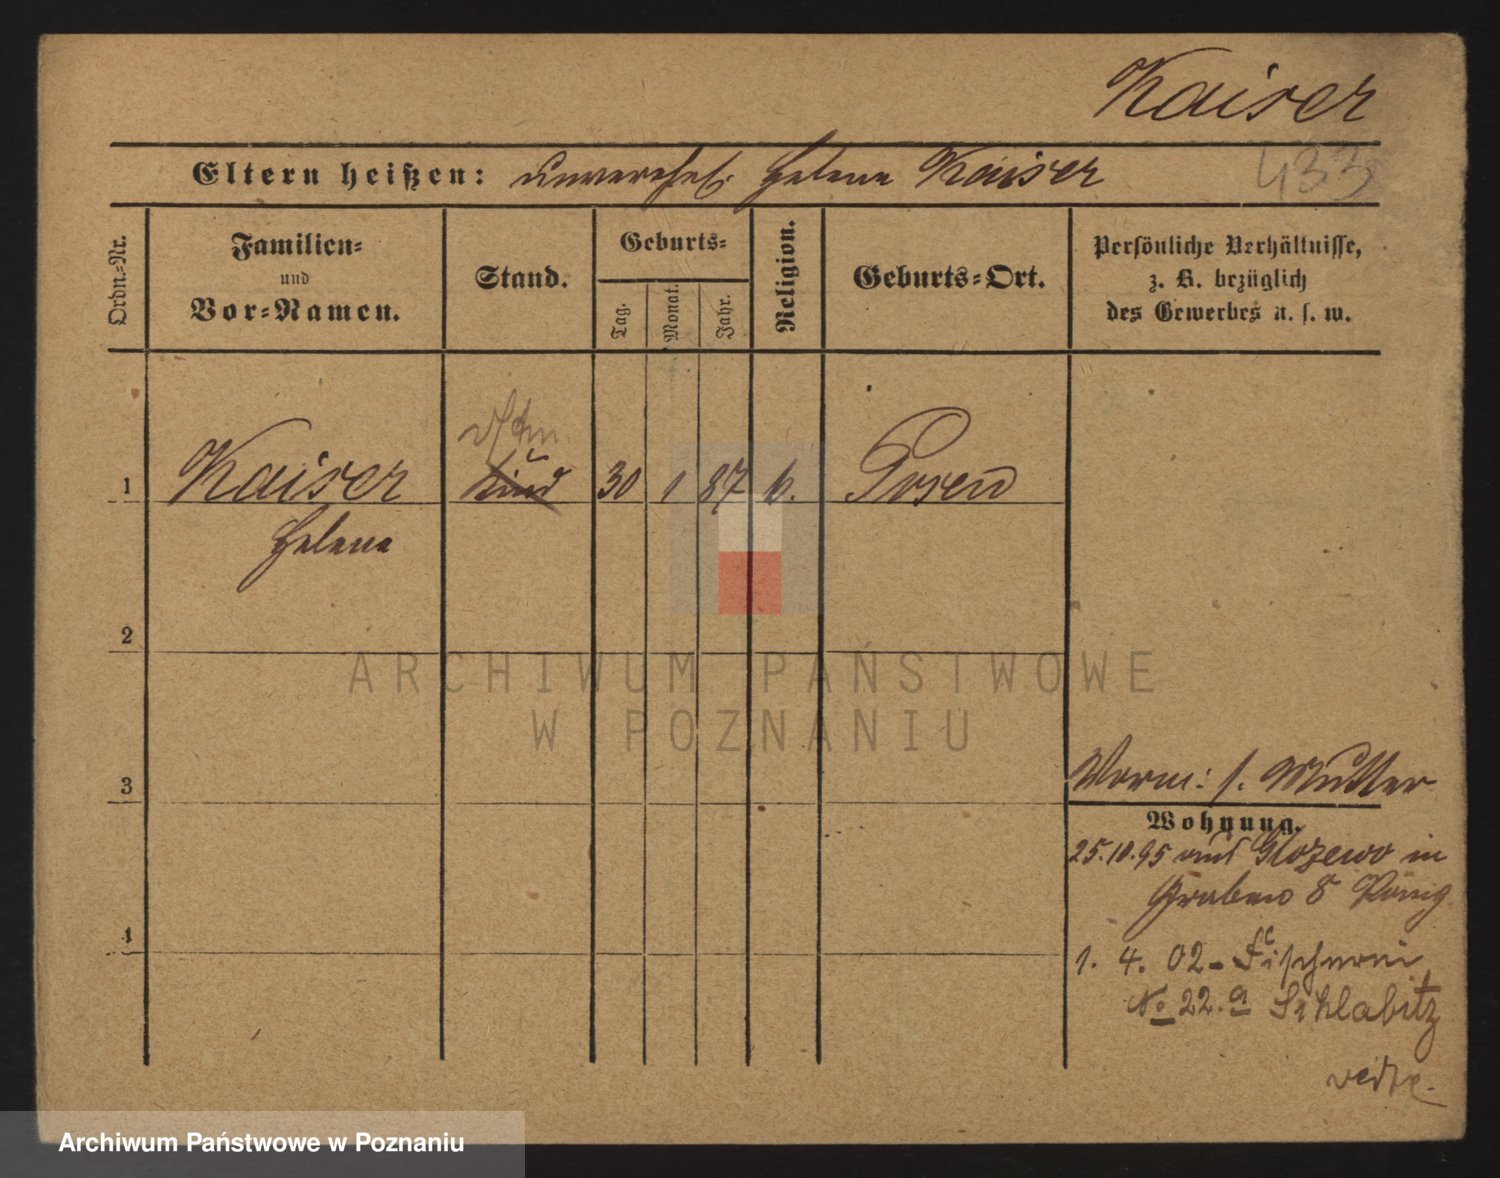 Kaiser
Eltern heißen: unverehel. Helene Kaiser
433
Ordn.=Nr.
Familien=
und
Vor=Namen.
Stand.
Geburts=
Tag.
Monat.
Jahr.
Religion.
Geburts=Ort.
Persönliche Verhältnisse,
z. B. bezüglich
des Gewerbes u. s. w.
1 Kaiser Kind 30 1 87 k. Posen
Helene
2
3
4
Vorm: s. Mutter
Wohnung.
25.10.95 aus Glozewo in
Graben 8 König
1. 4. 02 - Fischerei
No 22.a Schlabitz
ARCHIWUM PAŃSTWOWE
W POZNANIU
Archiwum Państwowe w Poznaniu